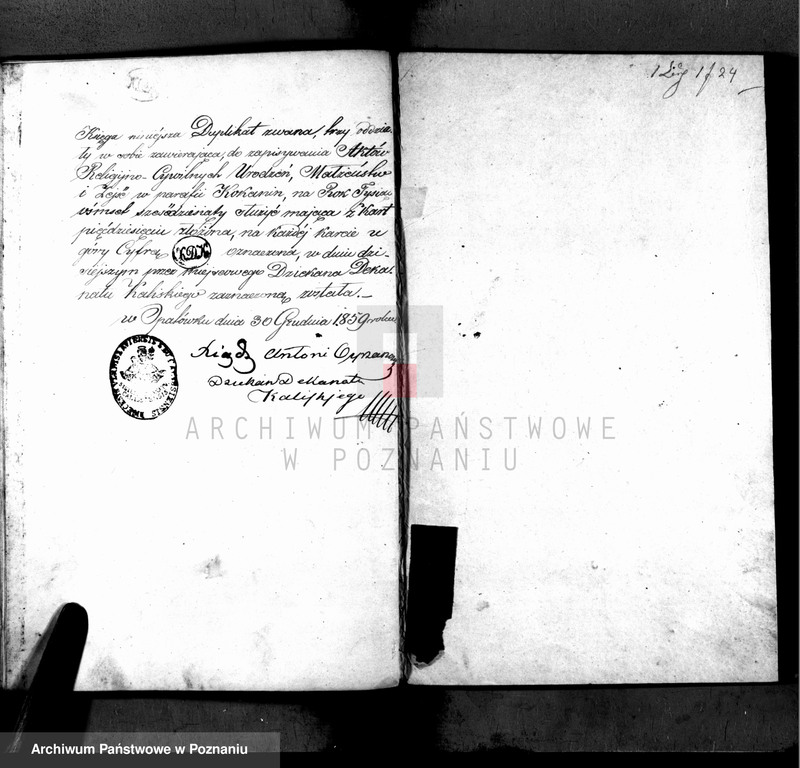 1 24
Księga niniejsza Duplikat zwana, trzy oddzia-
ły w sobie zawierająca, do zapisywania Aktów
Religijno-Cywilnych Urodzeń, Małżeństw
i Zejść w parafii Kokanin, na Rok Tysiąc
ośmset sześćdziesiąty służyć mająca z kart
pięćdziesięciu złożona, na każdej karcie u
góry Cyfrą KDK oznaczona, w dniu dzi-
siejszym przez miejscowego Dziekana Deka-
natu Kaliskiego zaznaczoną została.—
w Opatówku dnia 30 Grudnia 1859 roku
Xiądz Antoni
Dziekan Dekanatu
Kaliskiego
ARCHIWUM PAŃSTWOWE
W POZNANIU
Archiwum Państwowe w Poznaniu